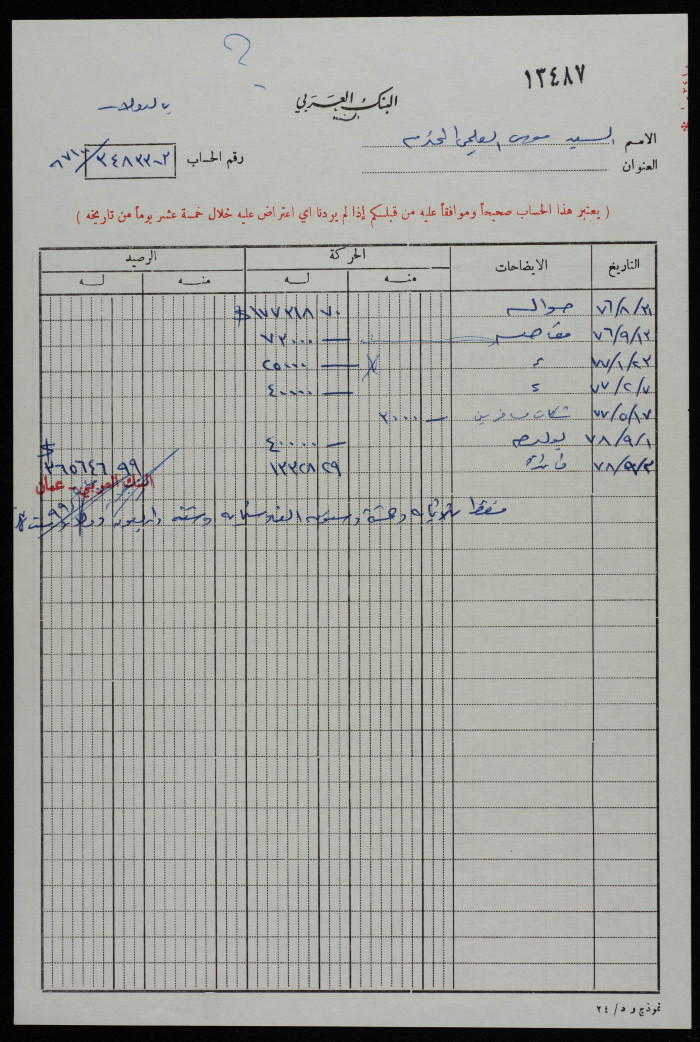 ١٣٤٨٧
البنك العربي
بالدولار
الاسم السيد موسى العلمي المحترم
العنوان
رقم الحساب
( يعتبر هذا الحساب صحيحاً وموافقاً عليه من قبلكم إذا لم يردنا اي اعتراض عليه خلال خمسة عشر يوماً من تاريخه )
التاريخ الايضاحات الحركة الرصيد
منه له منه له
٧٦/٨/٣١ حواله ١٧٧٣١٨ ٧٠ $
٧٦/٩/١٣ مقاصه ٧٢٠٠٠ —
٧٧/١/٢٣ ٢٥٠٠٠ —
٧٧/٢/٧ ٤٠٠٠٠ —
٧٧/٥/١٧ شكات مسافرين ٢٠٠٠ —
٧٨/٩/١ ٤٠٠٠٠ —
فائدة ١٣٣٢٨ ٢٩ ٣٦٥٦٤٦ ٩٩ $
البنك العربي - عمان
فقط ثلاثماية وخمسة وستون الف وستماية وستة واربعون دولار
نموذج و د / ٢٤